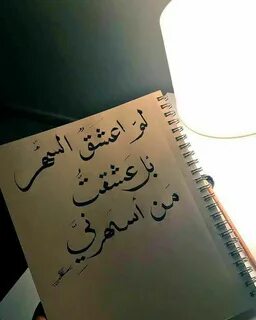 لم اعشقُ السهرُ
بل عَشقتُ
مَن أسهَرنيَّ